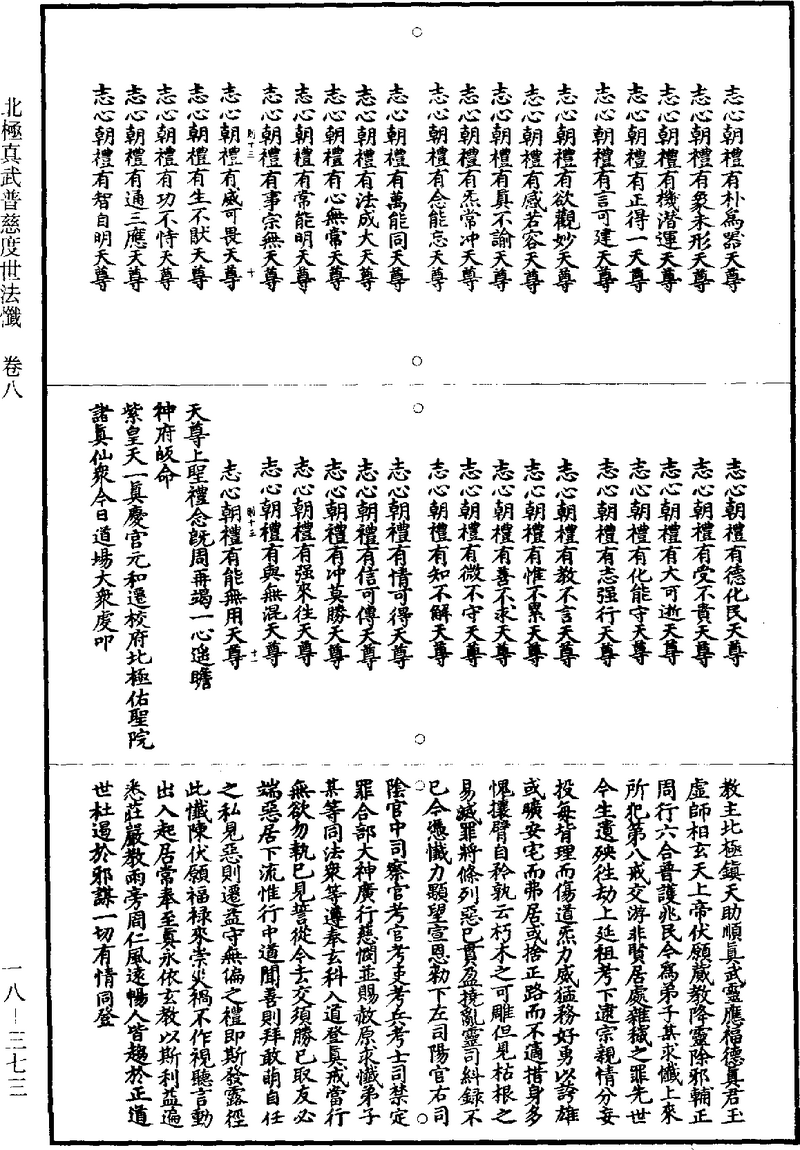 北極真武普慈度世法懺　卷八
一八—三七三
志心朝禮有朴爲器天尊
志心朝禮有衆未形天尊
志心朝禮有機潛運天尊
志心朝禮有正得一天尊
志心朝禮有言可建天尊
志心朝禮有欲觀妙天尊
志心朝禮有感若容天尊
志心朝禮有真不諭天尊
志心朝禮有炁常冲天尊
志心朝禮有念能忘天尊
志心朝禮有萬能同天尊
志心朝禮有法成大天尊
志心朝禮有心無常天尊
志心朝禮有常能明天尊
志心朝禮有事宗無天尊
十三　十
志心朝禮有威可畏天尊
志心朝禮有生不猒天尊
志心朝禮有功不恃天尊
志心朝禮有通三應天尊
志心朝禮有智自明天尊
志心朝禮有德化民天尊
志心朝禮有受不貴天尊
志心朝禮有大可逝天尊
志心朝禮有化能守天尊
志心朝禮有志强行天尊
志心朝禮有教不言天尊
志心朝禮有惟不累天尊
志心朝禮有善不求天尊
志心朝禮有微不守天尊
志心朝禮有知不解天尊
志心朝禮有情可得天尊
志心朝禮有信可傳天尊
志心朝禮有冲莫勝天尊
志心朝禮有强來往天尊
志心朝禮有與無混天尊
十三　十一
志心朝禮有能無用天尊
天尊上聖禮念旣周再竭一心遙瞻
神府皈命
紫皇天一真慶宫元和遷校府北極佑聖院
諸真仙衆今日道場大衆虔叩
教主北極鎮天助順真武靈應福德真君玉
虛師相玄天上帝伏願葳教降靈除邪輔正
周行六合普護兆民令爲弟子某求懺上來
所犯第八戒交游非賢居處雜穢之罪先世
今生遺殃往劫上延祖考下逮宗親情分妄
投每背理而傷道炁力威猛務好勇以誇雄
或曠安宅而弗居或捨正路而不適措身多
愧攘臂自矜孰云朽木之可雕但見枯根之
易滅罪將條列惡已貫盈撓亂靈司糾録不
已今憑懺力顒望宣恩勑下左司陽官右司
陰官中司察官考官考吏考兵考士司禁定
罪合部大神廣行慈憫並賜赦原求懺弟子
某等同法衆等遵奉玄科入道登真戒當行
無欲勿執已見誓從今去交須勝已取友必
端惡居下流惟行中道聞善則拜敢萌自任
之私見惡則遷益守無偏之禮即斯發露徑
此懺陳伏願福禄來崇火禍不作視聽言動
出入起居常奉至真永依玄教以斯利益遍
悉莊嚴教雨旁周仁風遠暢人皆趨於正道
世杜遏於邪謀一切有情同登